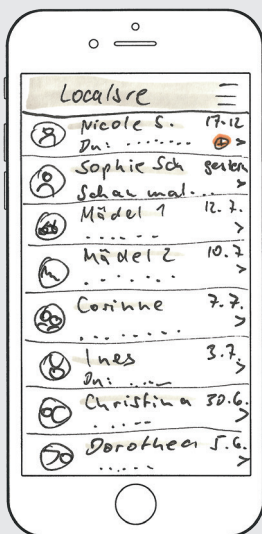 Localsre
Nicole S. 17:12
Du: .......
Sophie Sch gestern
Schau mal...
Mädel 1 12.7.
......
Mädel 2 10.7
.......
Corinne 7.7.
.......
Ines 3.7.
Du: .....
Christina 30.6.
.....
Dorothea 5.6.
.....